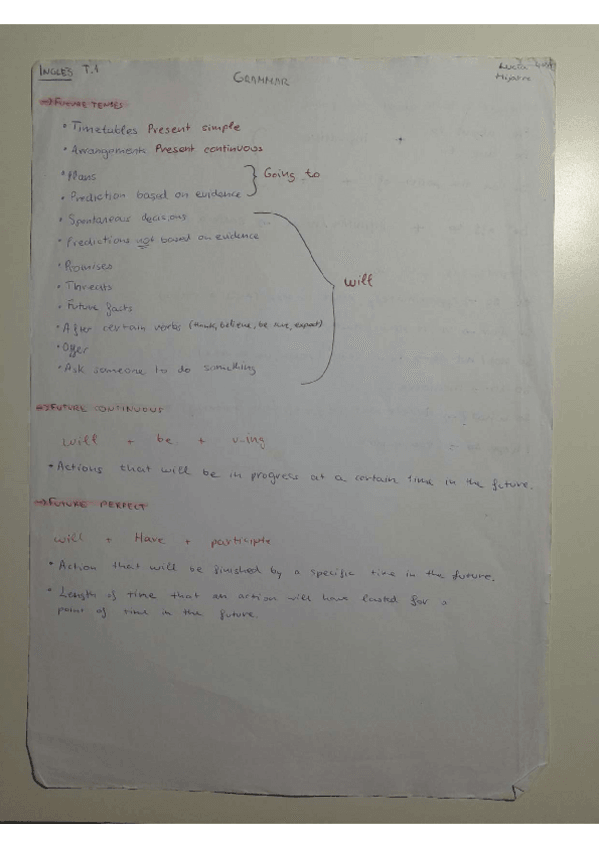 INGLES T.1
GRAMMAR
Lucía
→ FUTURE TENSES
• Timetables Present simple
• Arrangements Present continuous
• Plans
Going to
• Prediction based on evidence
• Spontaneous decisions
• Predictions not based on evidence
• Promises
will
• Threats
• Future facts
• After certain verbs (think, believe, be sure, expect)
• Offer
• Ask someone to do something
→ FUTURE CONTINUOUS
will + be + v-ing
• Actions that will be in progress at a certain time in the future.
→ FUTURE PERFECT
will + Have + participle
• Action that will be finished by a specific time in the future.
• Length of time that an action will have lasted for a
point of time in the future.